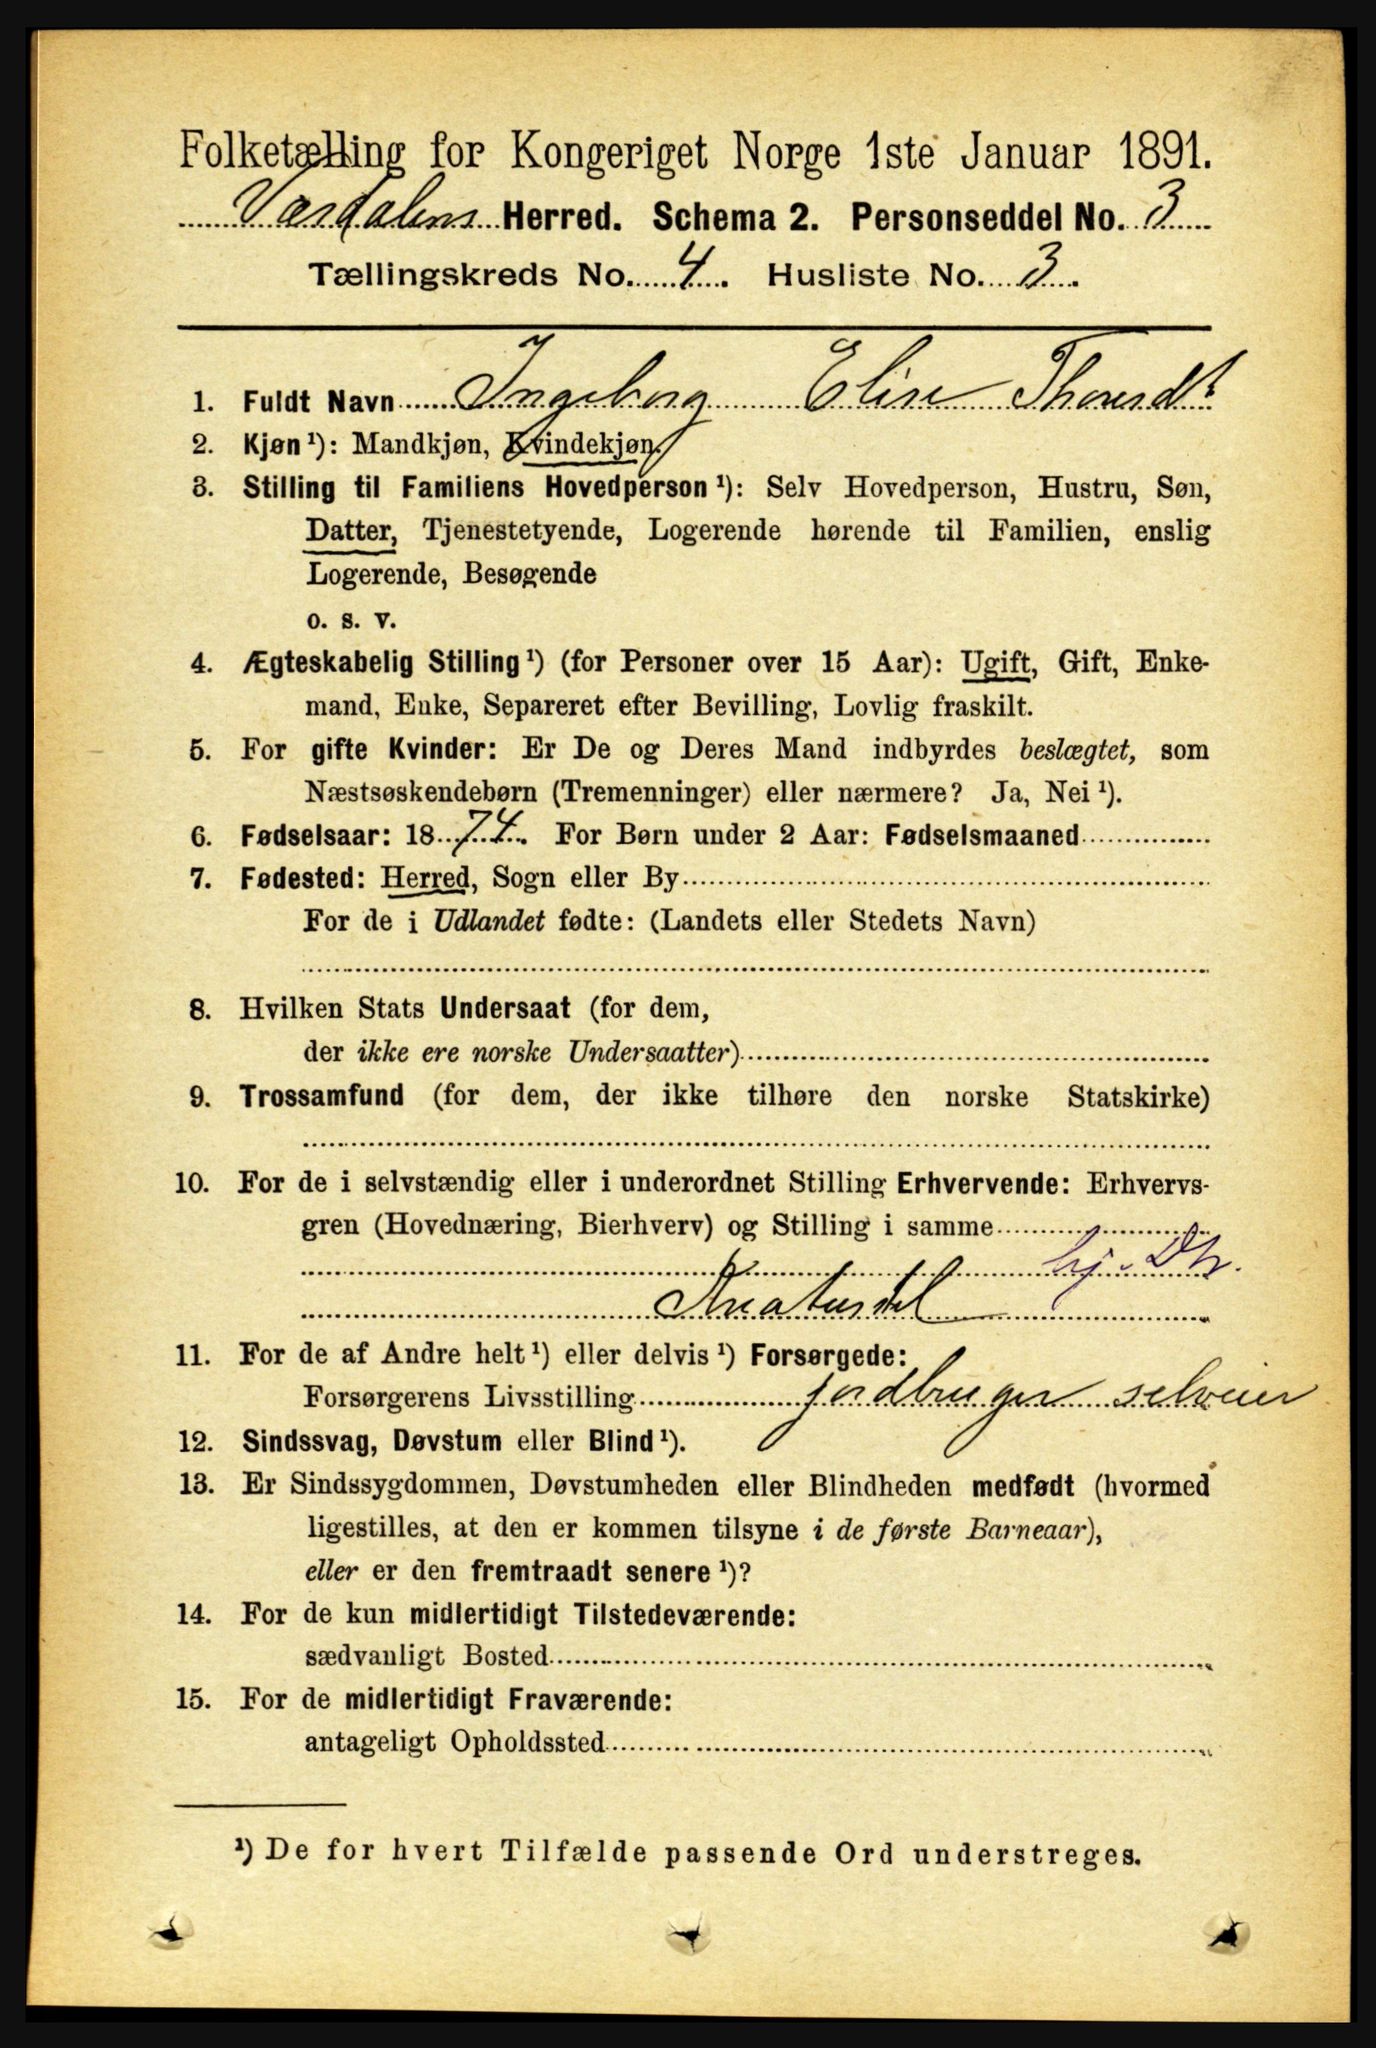 Folketælling for Kongeriget Norge 1ste Januar 1891.
Værdalens Herred. Schema 2. Personseddel No. 3
Tællingskreds No. 4. Husliste No. 3.
1. Fuldt Navn Ingeborg Elise
2. Kjøn ¹): Mandkjøn, Kvindekjøn.
3. Stilling til Familiens Hovedperson ¹): Selv Hovedperson, Hustru, Søn,
Datter, Tjenestetyende, Logerende hørende til Familien, enslig
Logerende, Besøgende
o. s. v.
4. Ægteskabelig Stilling ¹) (for Personer over 15 Aar): Ugift, Gift, Enke-
mand, Enke, Separeret efter Bevilling, Lovlig fraskilt.
5. For gifte Kvinder: Er De og Deres Mand indbyrdes beslægtet, som
Næstsøskendebørn (Tremenninger) eller nærmere? Ja, Nei ¹).
6. Fødselsaar: 1874. For Børn under 2 Aar: Fødselsmaaned
7. Fødested: Herred, Sogn eller By
For de i Udlandet fødte: (Landets eller Stedets Navn)
8. Hvilken Stats Undersaat (for dem,
der ikke ere norske Undersaatter)
9. Trossamfund (for dem, der ikke tilhøre den norske Statskirke)
10. For de i selvstændig eller i underordnet Stilling Erhvervende: Erhvervs-
gren (Hovednæring, Bierhverv) og Stilling i samme
hj. Dtr.
Kreaturstel
11. For de af Andre helt ¹) eller delvis ¹) Forsørgede:
Forsørgerens Livsstilling jordbruger selveier
12. Sindssvag, Døvstum eller Blind ¹).
13. Er Sindssygdommen, Døvstumheden eller Blindheden medfødt (hvormed
ligestilles, at den er kommen tilsyne i de første Barneaar),
eller er den fremtraadt senere ¹)?
14. For de kun midlertidigt Tilstedeværende:
sædvanligt Bosted
15. For de midlertidigt Fraværende:
antageligt Opholdssted
¹) De for hvert Tilfælde passende Ord understreges.